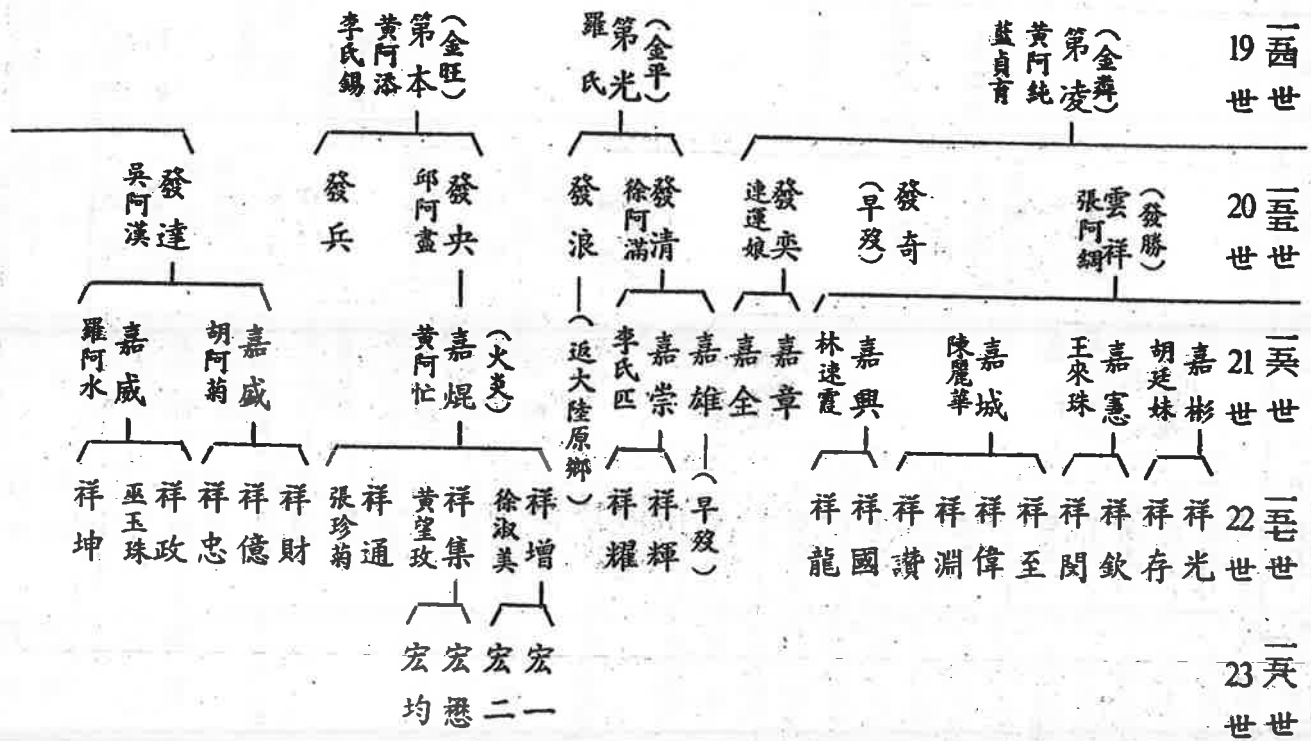 一五四世
19世
(金)
第凌
黃阿純
藍貞育
(金平)
第光
羅氏
(金旺)
第本
黃阿添
李氏錫
一五五世
20世
(發勝)
雲祥
張阿綢
發奇
(早歿)
發奕
連運娘
發清
徐阿滿
發浪
發央
邱阿盡
發兵
發達
吳阿漢
一五六世
21世
嘉彬
胡廷妹
嘉憲
王來珠
嘉城
陳麗華
嘉興
林速霞
嘉章
嘉全
嘉雄
嘉崇
李氏匹
(返大陸原鄉)
(火炎)
嘉焜
黃阿忙
嘉盛
胡阿菊
嘉威
羅阿水
一五七世
22世
祥光
祥存
祥欽
祥閔
祥至
祥偉
祥淵
祥讚
祥國
祥龍
(早歿)
祥輝
祥耀
祥增
徐淑美
祥集
黃望玫
祥通
張珍菊
祥財
祥億
祥忠
祥政
巫玉珠
祥坤
一五八世
23世
宏一
宏二
宏懋
宏均